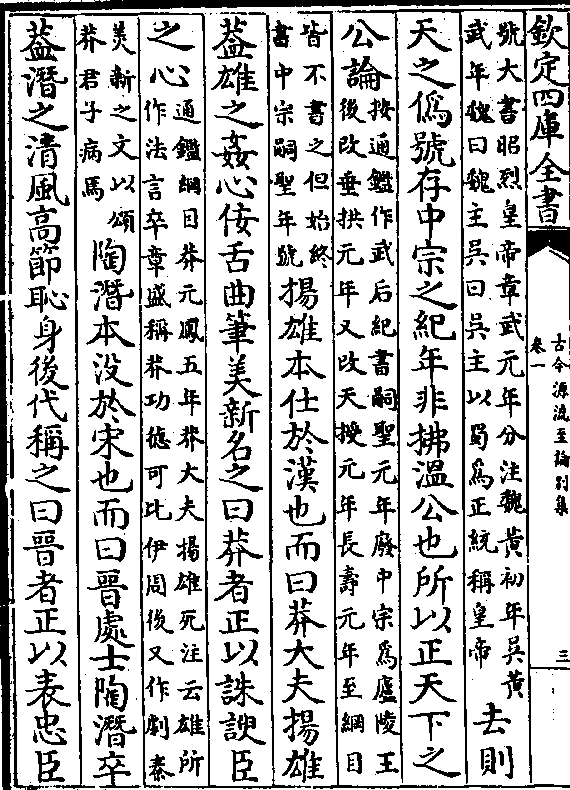 欽定四庫全書
古今源流至論別集
卷一
三
號大書昭烈皇帝章武元年分注魏黃初年吳黃
武年魏曰魏主吳曰吳主以蜀爲正統稱皇帝
去則
天之僞號存中宗之紀年非拂溫公也所以正天下之
公論
按通鑑作武后紀書嗣聖元年廢中宗爲廬陵王
後改垂拱元年又改天授元年長壽元年至綱目
皆不書之但始終
書中宗嗣聖年號
揚雄本仕於漢也而曰莽大夫揚雄
葢雄之姦心佞舌曲筆美新名之曰莽者正以誅諛臣
之心
通鑑綱目莽元鳳五年莽大夫揚雄死注云雄所
作法言卒章盛稱莽功德可比伊周後又作劇秦
美新之文以頌
莽君子病焉
陶潛本没於宋也而曰晉處士陶潛卒
葢潛之清風高節恥身後代稱之曰晉者正以表忠臣